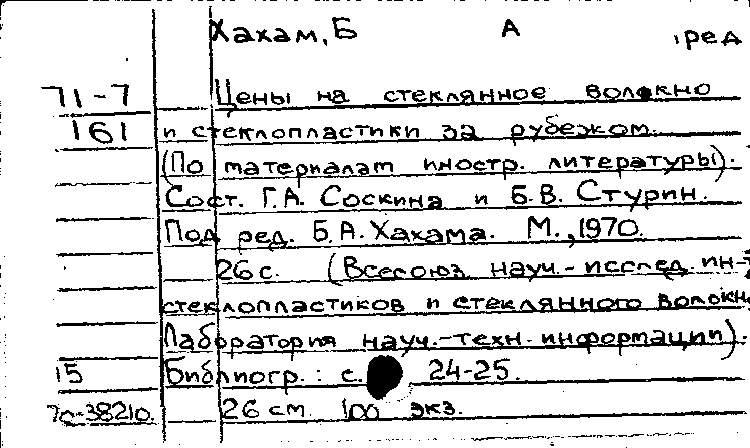 Хахам, Б А , ред
71-7 Цены на стеклянное волокно
161 и стеклопластики за рубежом.
(По материалам иностр. литературы).
Сост. Г.А. Соскина и Б.В. Стурин.
Под ред. Б.А. Хахама. М., 1970.
26 с. (Всесоюз науч.-исслед. ин-т
стеклопластиков и стеклянного волокна
Лаборатория науч.-техн. информации).
15 Библиогр.: с. 24-25.
70-38210. 26 см. 100 экз.